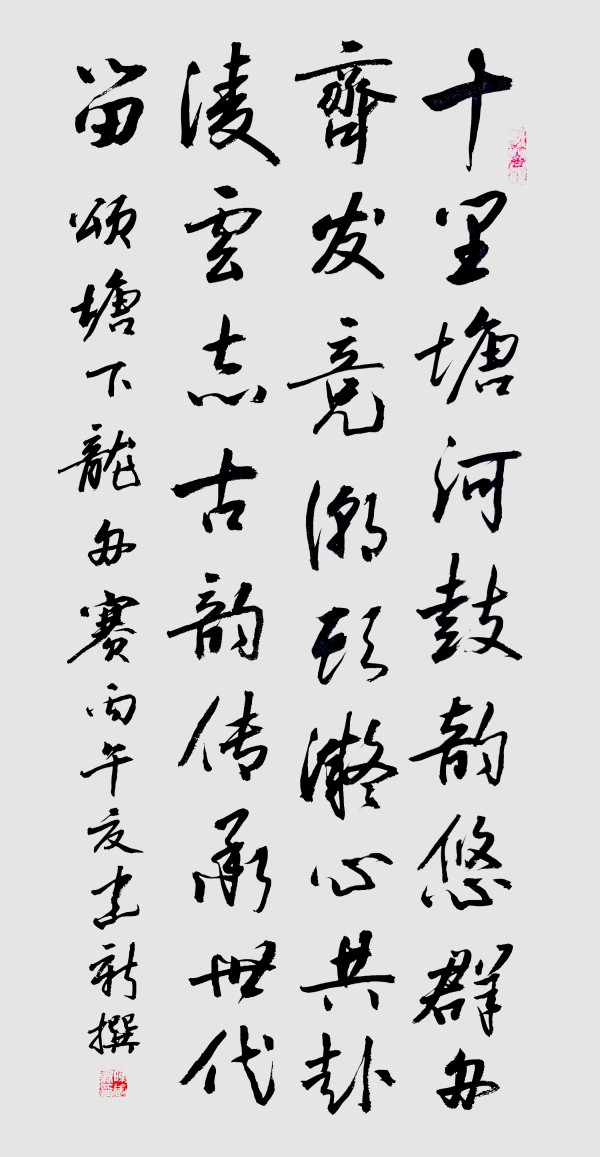 十里塘河鼓韵悠群舟
齊发竞潮头凝心共赴
淩雲志古韵传承世代
留 颂塘下龍舟赛丙午夏建新撰